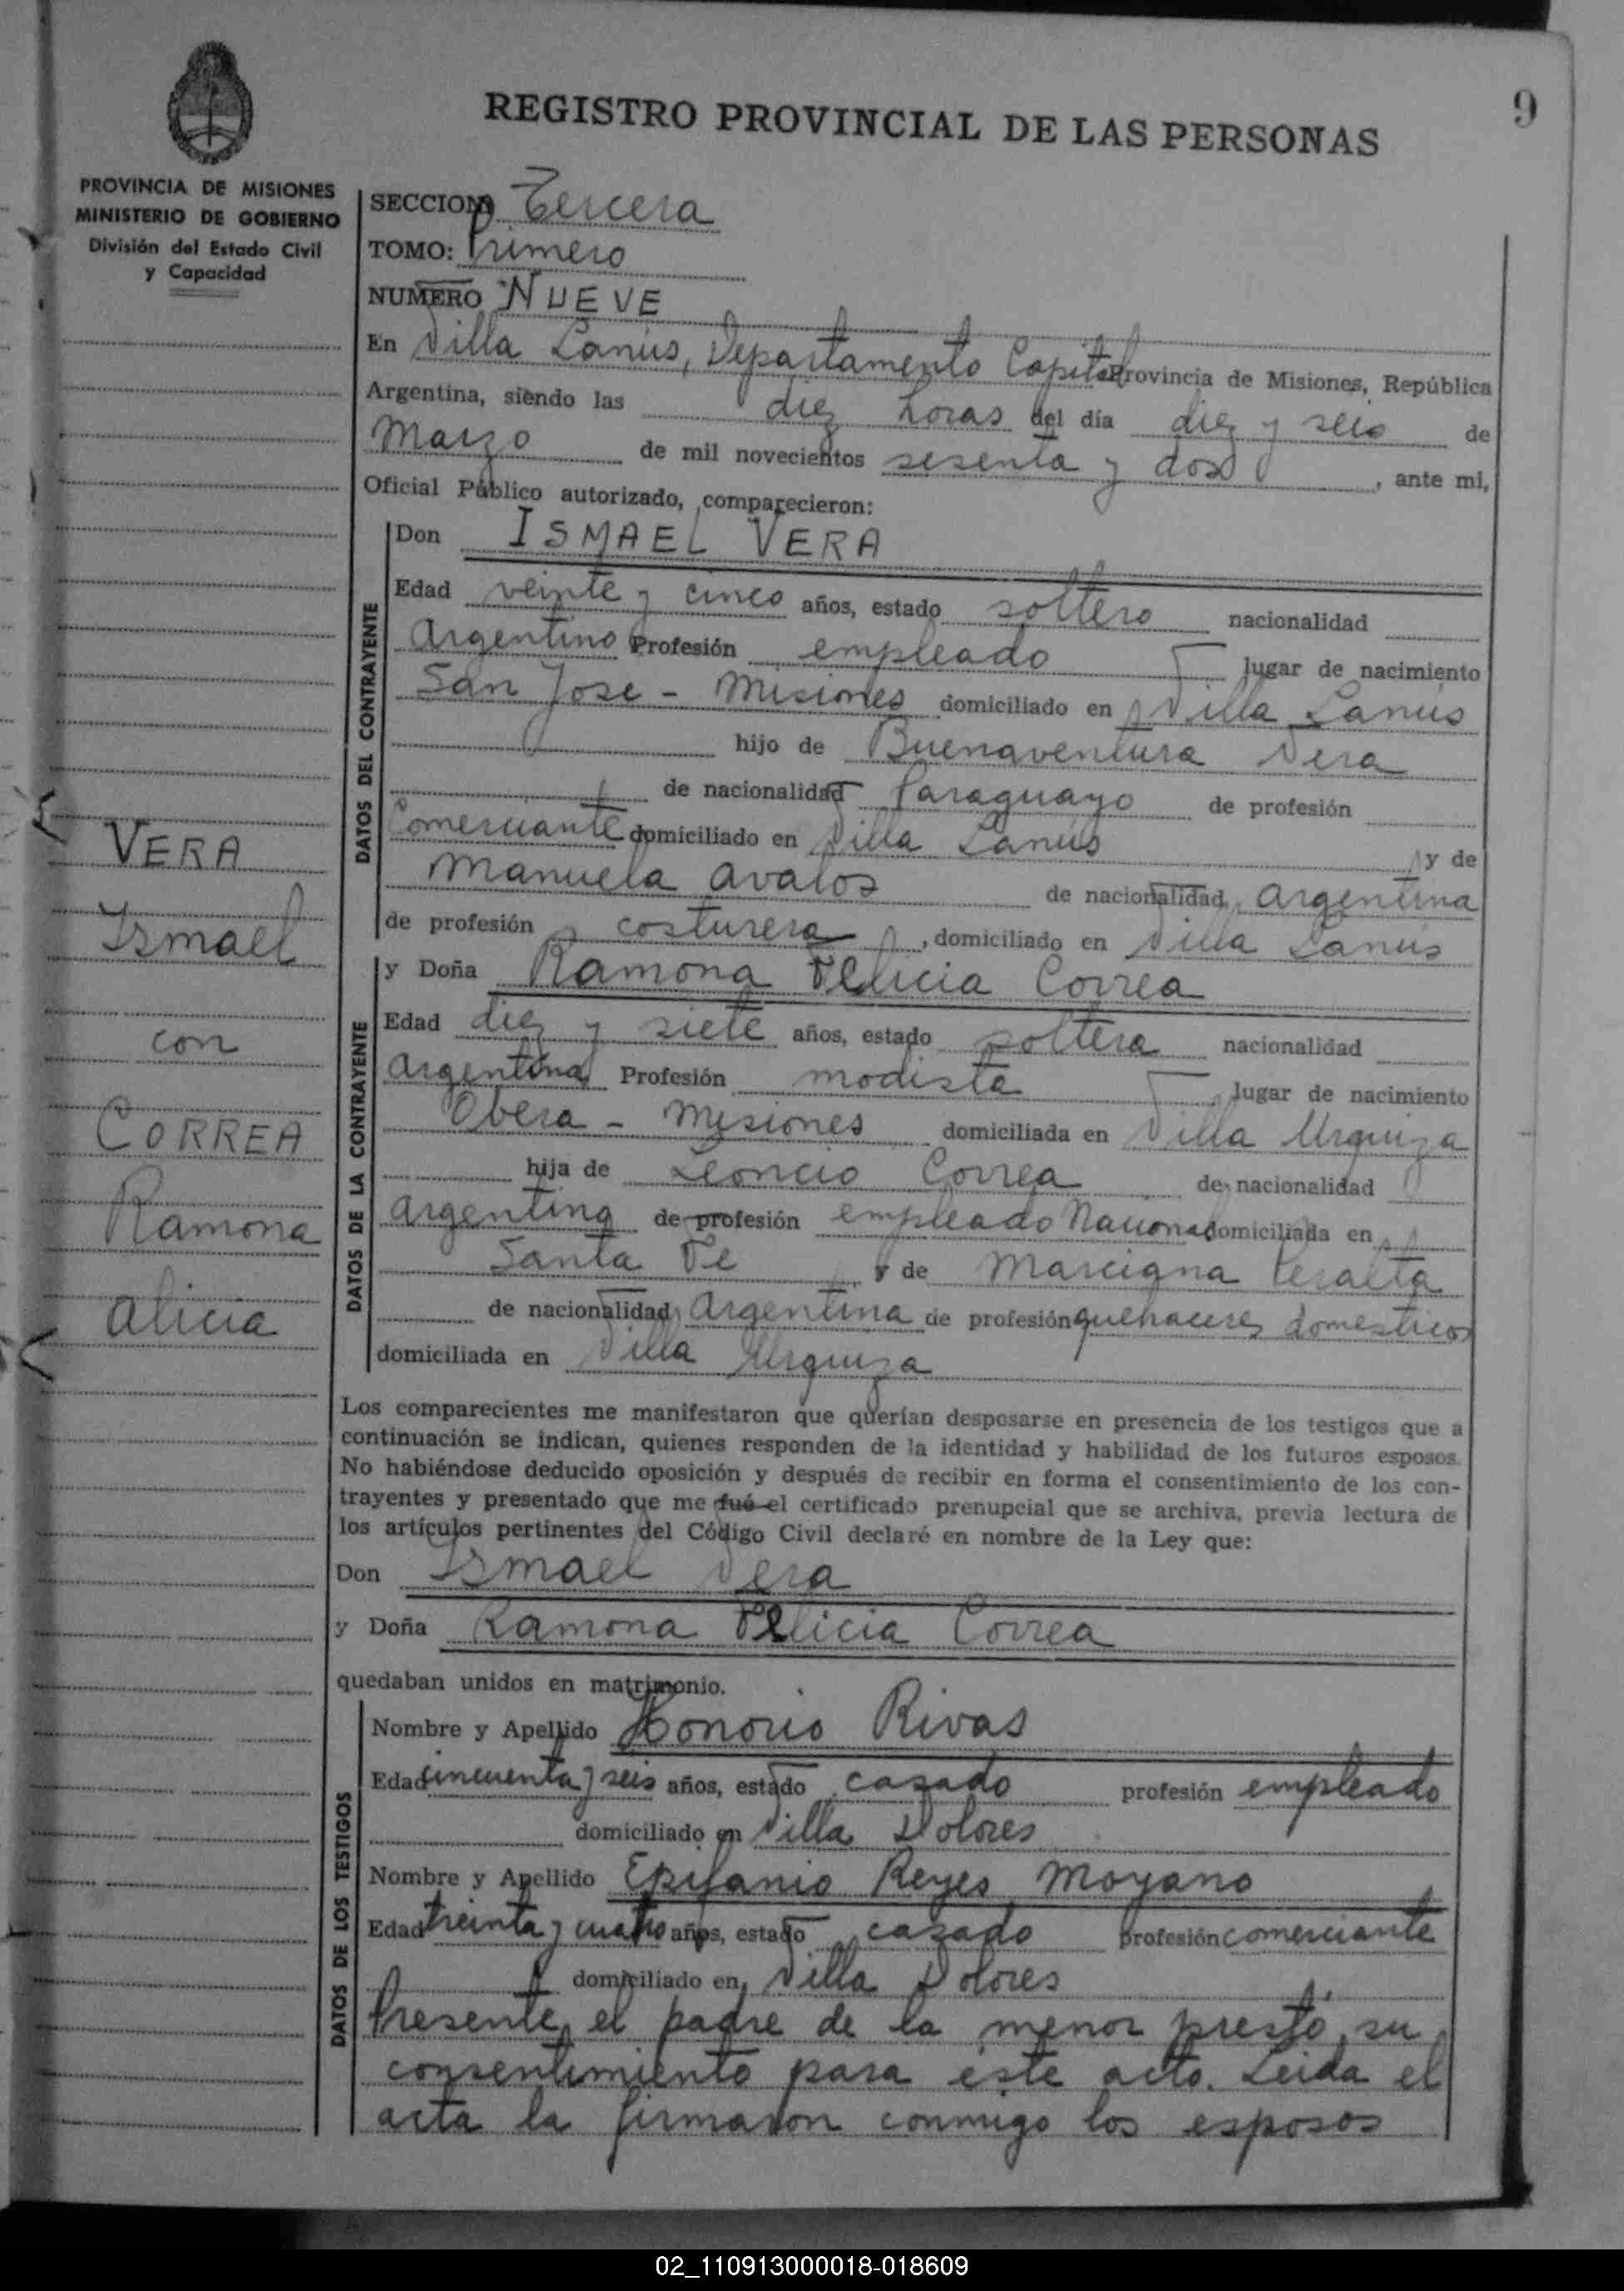 9
REGISTRO PROVINCIAL DE LAS PERSONAS
PROVINCIA DE MISIONES
MINISTERIO DE GOBIERNO
División del Estado Civil
y Capacidad
SECCION Tercera
TOMO: Primero
NUMERO NUEVE
En Villa Lanús, Departamento Capital Provincia de Misiones, República
Argentina, siendo las diez horas del día diez y seis de
Marzo de mil novecientos sesenta y dos, ante mi,
Oficial Público autorizado, comparecieron:
DATOS DEL CONTRAYENTE
Don ISMAEL VERA
Edad veinte y cinco años, estado soltero nacionalidad
Argentino Profesión empleado lugar de nacimiento
San Jose - Misiones domiciliado en Villa Lanús
hijo de Buenaventura Vera
de nacionalidad Paraguayo de profesión
Comerciante domiciliado en Villa Lanús y de
Manuela Avalos de nacionalidad Argentina
de profesión costurera, domiciliado en Villa Lanús
VERA
Ismael
con
CORREA
Ramona
Alicia
DATOS DE LA CONTRAYENTE
y Doña Ramona Felicia Correa
Edad diez y siete años, estado soltera nacionalidad
Argentina Profesión modista lugar de nacimiento
Obera - Misiones domiciliada en Villa Urquiza
hija de Leoncio Correa de nacionalidad
Argentino de profesión empleado Nacional domiciliada en
Santa Fe y de Marciana Peralta
de nacionalidad Argentina de profesión quehaceres domesticos
domiciliada en Villa Urquiza
Los comparecientes me manifestaron que querían desposarse en presencia de los testigos que a
continuación se indican, quienes responden de la identidad y habilidad de los futuros esposos.
No habiéndose deducido oposición y después de recibir en forma el consentimiento de los con-
trayentes y presentado que me fué el certificado prenupcial que se archiva, previa lectura de
los artículos pertinentes del Código Civil declaré en nombre de la Ley que:
Don Ismael Vera
y Doña Ramona Felicia Correa
quedaban unidos en matrimonio.
DATOS DE LOS TESTIGOS
Nombre y Apellido Honorio Rivas
Edad cincuenta y seis años, estado casado profesión empleado
domiciliado en Villa Dolores
Nombre y Apellido Epifanio Reyes Moyano
Edad treinta y cuatro años, estado casado profesión comerciante
domiciliado en Villa Dolores
Presente el padre de la menor prestó su
consentimiento para este acto. Leida el
acta la firmaron conmigo los esposos
02_110913000018-018609